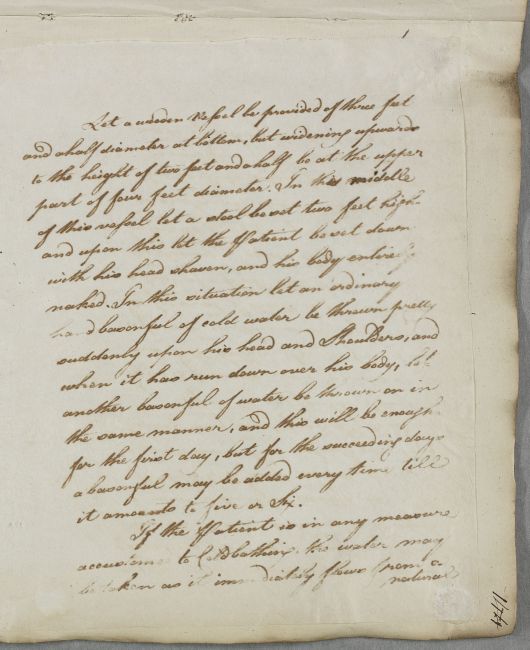 1
Let a wooden Vessel be provided of three feet
and a half diameter at bottom, but widening upwards
to the height of two feet and a half be at the upper
part of four feet diameter. In the middle
of this vessel let a stool be set two feet high
and upon this let the Patient be set down
with his head shaven, and his body entirely
naked. In this situation let an ordinary
hand basonful of cold water be thrown pretty
suddenly upon his head and Shoulders, and
when it has run down over his body, let
another basonful of water be thrown on in
the same manner, and this will be enough
for the first day, but for the succeeding days
a basonful may be added every time till
it amounts to five or Six.
If the Patient is in any measure
accustomed to Cold bathing the water may
be taken as it immediately flows from a
natural